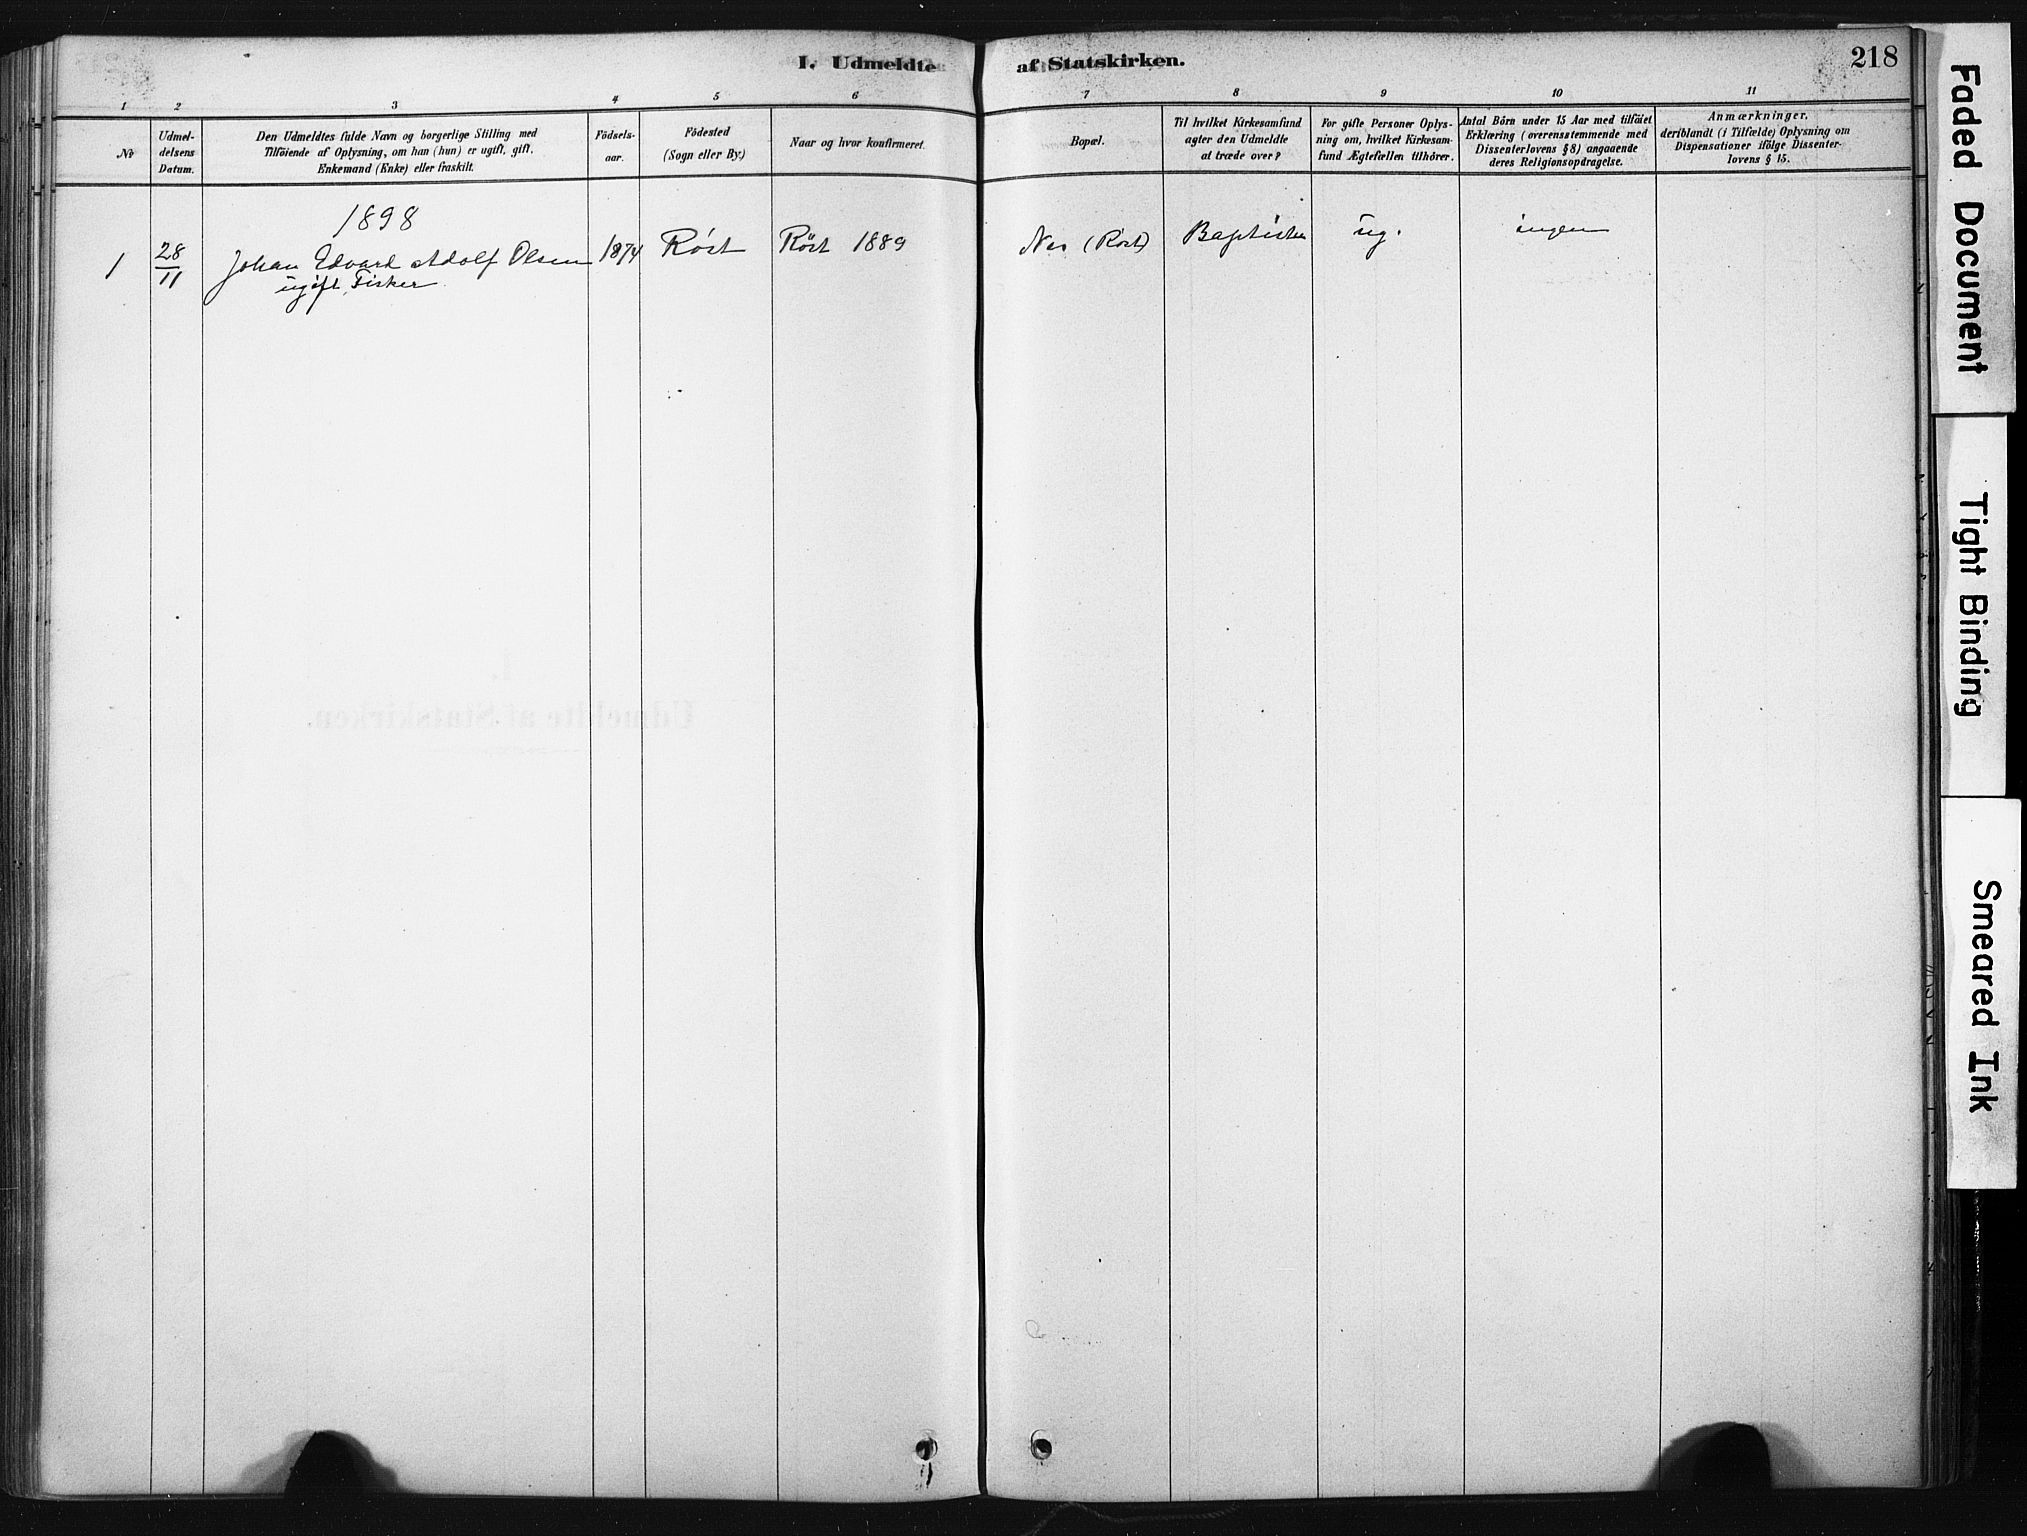 I. Udmeldte af Statskirken.
218
1 2 3 4 5 6 7 8 9 10 11
No
Udmel-
delsens
Datum.
Den Udmeldtes fulde Navn og borgerlige Stilling med
Tilföiende af Oplysning, om han (hun) er ugift, gift,
Enkemand (Enke) eller fraskilt.
Födsels-
aar.
Födested
(Sogn eller By.)
Naar og hvor konfirmeret.
Bopæl.
Til hvilket Kirkesamfund
agter den Udmeldte
at træde over?
For gifte Personer Oplys-
ning om, hvilket Kirkesam-
fund Ægtefællen tilhörer.
Antal Börn under 15 Aar med tilföiet
Erklæring (overensstemmende med
Dissenterlovens § 8) angaaende
deres Religionsopdragelse.
Anmærkninger,
deriblandt (i Tilfælde) Oplysning om
Dispensationer ifölge Dissenter-
lovens § 15.
1898
1 28/11 Johan Edvard Adolf Olsen 1874 Röst Röst 1889 Nes (Röst) Baptister ug. ingen
ugift, Fisker
Faded Document
Tight Binding
Smeared Ink
I.
Udmeldte af Statskirken.